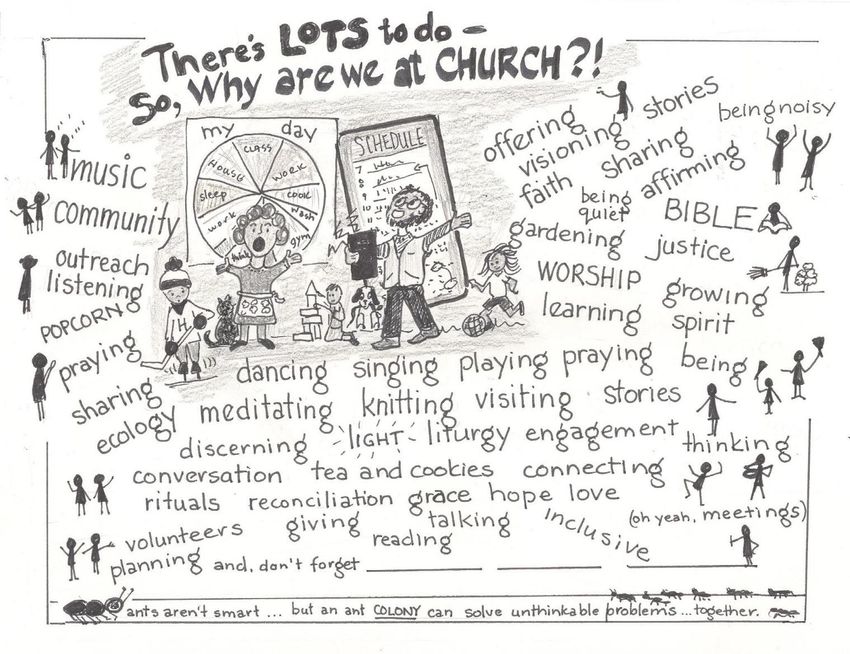 There's LOTS to do -
So, Why are we at CHURCH?!
my day
CLASS
HOUSE
WORK
sleep
cook
work
wash
gym
think
SCHEDULE
7
8
9
10
11
12
H
offering
visioning
stories
being noisy
faith
sharing
being quiet
affirming
music
community
BIBLE
gardening
justice
outreach
listening
WORSHIP
growing
POPCORN
learning
spirit
praying
dancing singing playing praying being
sharing
ecology
meditating knitting visiting stories
discerning LIGHT liturgy engagement thinking
conversation tea and cookies connecting
rituals reconciliation grace hope love
(oh yeah, meetings)
volunteers giving talking inclusive
reading
planning and, don't forget
ants aren't smart ... but an ant COLONY can solve unthinkable problems ... together.